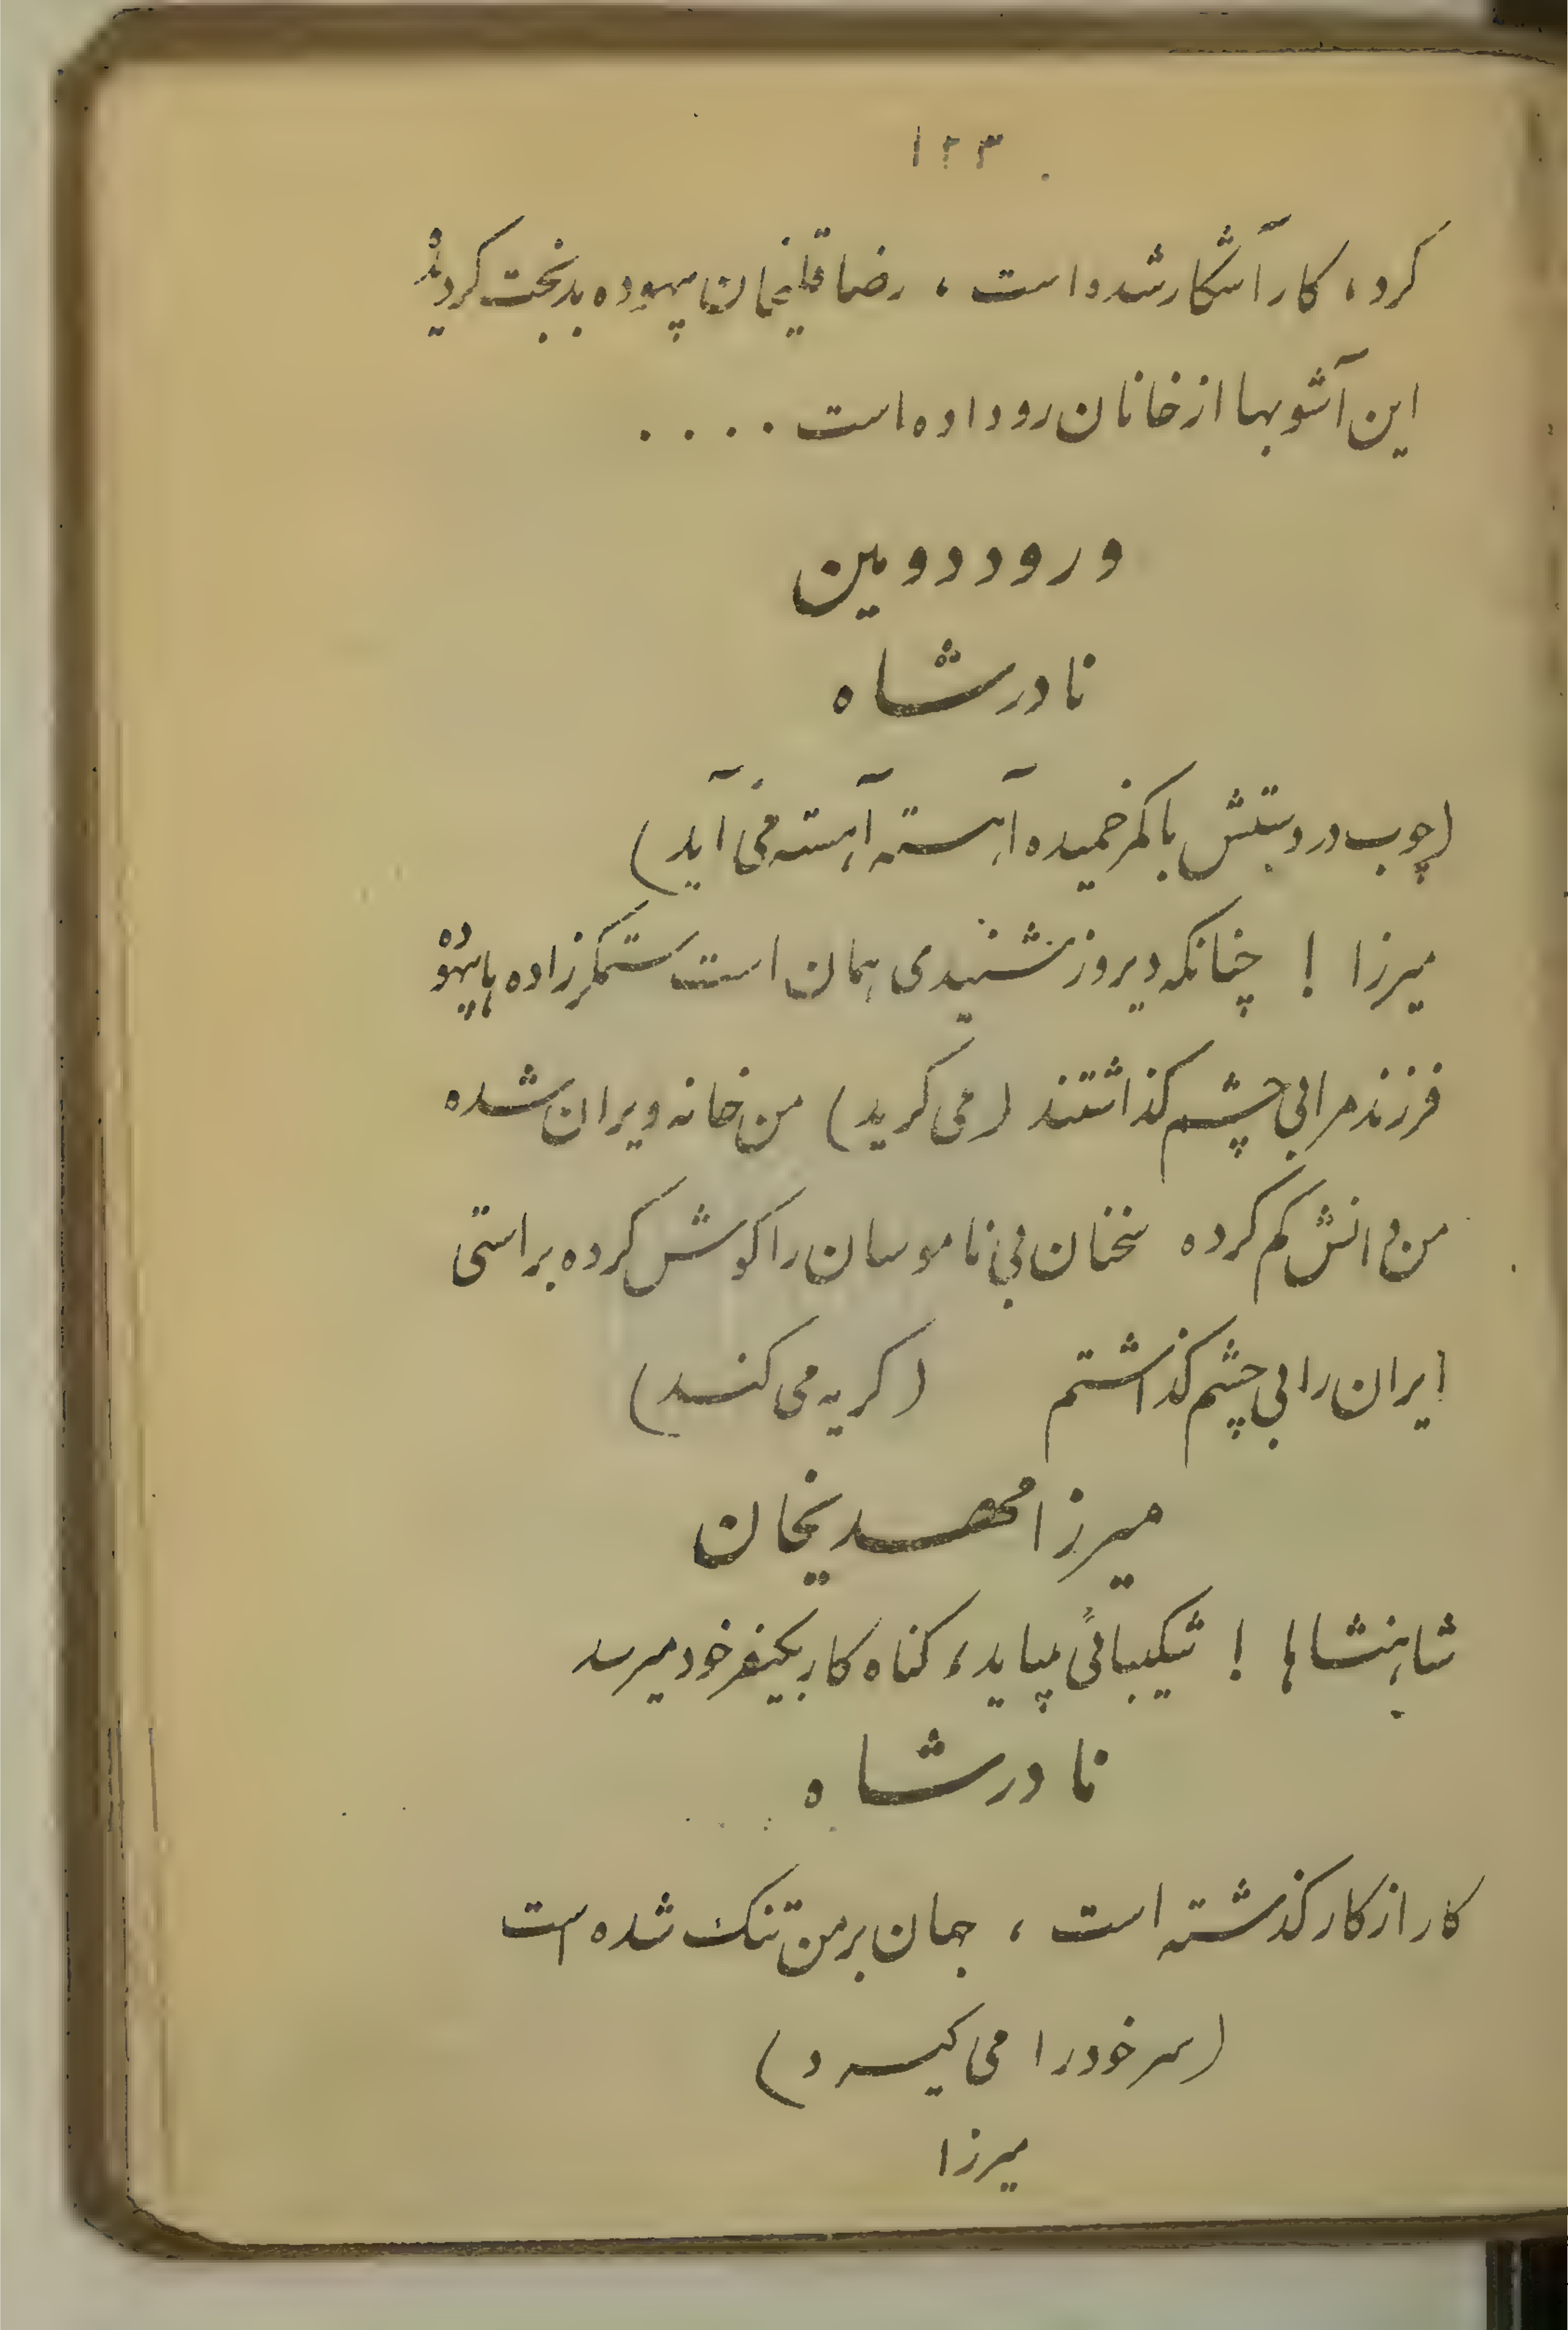 ۱۲۳
کرد، کار آشکار شده است، رضاقلیخان بیهوده بدبخت گردید
این آشوبها از خانان رو داده است . . . .
ورود دومین
نادرشاه
(چوب در دستش با کمر خمیده آهسته آهسته می آید)
میرزا ! چنانکه دیروز شنیدی همان است ستمکرزاده ها بیهوده
فرزند مرا بی چشم کذاشتند (می کرید) من خانه ویران شده
من دانش کم کرده سخنان بی ناموسان را کوش کرده براستی
ایران را بی چشم کذاشتم (کریه می کند)
میرزا مهدیخان
شاهنشاها ! شکیبائی میباید، کناه کار بکیفر خود میرسد
نادرشاه
کار از کار کذشته است، جهان بر من تنک شده است
(سر خود را می کیرد)
میرزا